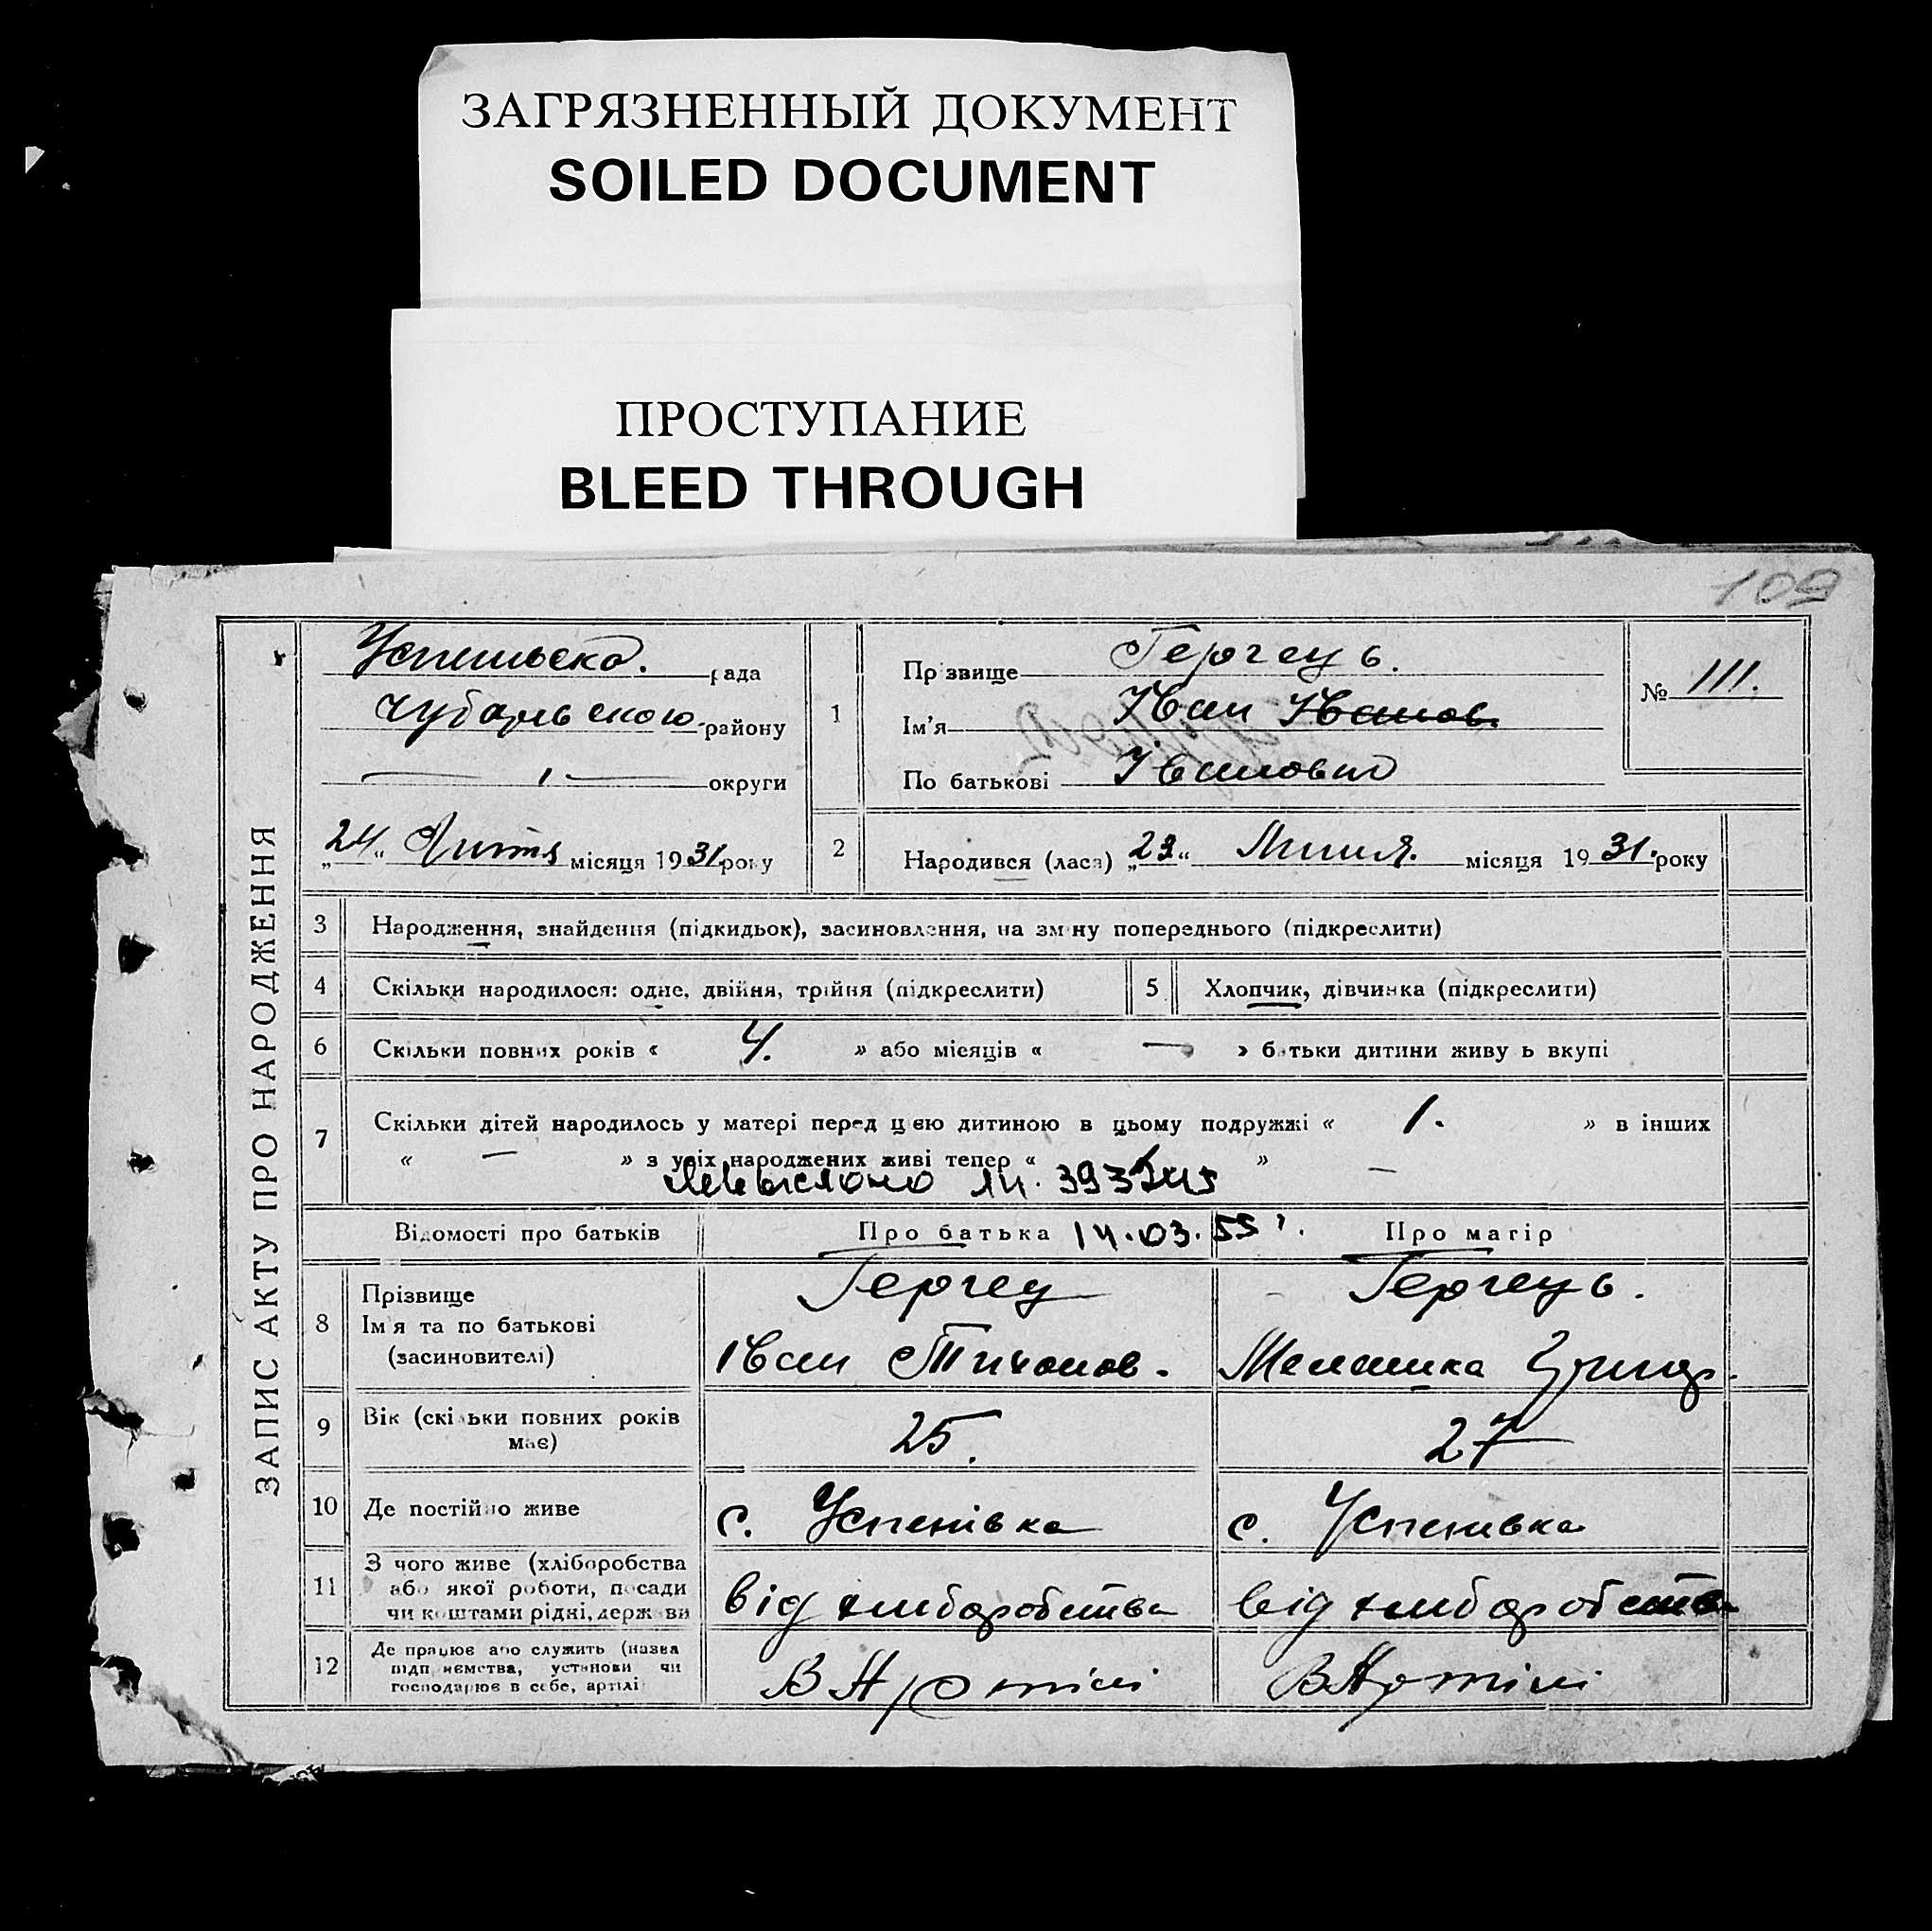 ЗАГРЯЗНЕННЫЙ ДОКУМЕНТ
SOILED DOCUMENT
ПРОСТУПАНИЕ
BLEED THROUGH
109
ЗАПИС АКТУ ПРО НАРОДЖЕННЯ
рада
Чубарівською району
округи
24 місяця 1931 року
1
Прізвище Гергець.
Ім'я Іван Іванов.
По батькові Іванович
№ 111.
2 Народився (лася) „23“ місяця 1931. року
3 Народження, знайдення (підкидьок), засиновлення, на зміну попереднього (підкреслити)
4 Скільки народилося: одне, двійня, трійня (підкреслити) 5 Хлопчик, дівчинка (підкреслити)
6 Скільки повних років « 4. » або місяців « — » батьки дитини живу ь вкупі
7 Скільки дітей народилось у матері перед цією дитиною в цьому подружжі « 1. » в інших
« — » з усіх народжених живі тепер « » —
Відомості про батьків Про батька 14.03.55 Про матір
8 Прізвище
Ім'я та по батькові
(засиновителі)
Гергец
Іван Тихонов.
Гергець.
Мелашка Григор.
9 Вік (скільки повних років
має)
25.
27
10 Де постійно живе с. Успенівка с. Успенівка
11 З чого живе (хліборобства
або якої роботи, посади
чи коштами рідні, держави
від хліборобства від хліборобства
12 Де працює або служить (назва
підприємства, установи чи
господарює в себе, артілі
В Артілі В Артілі